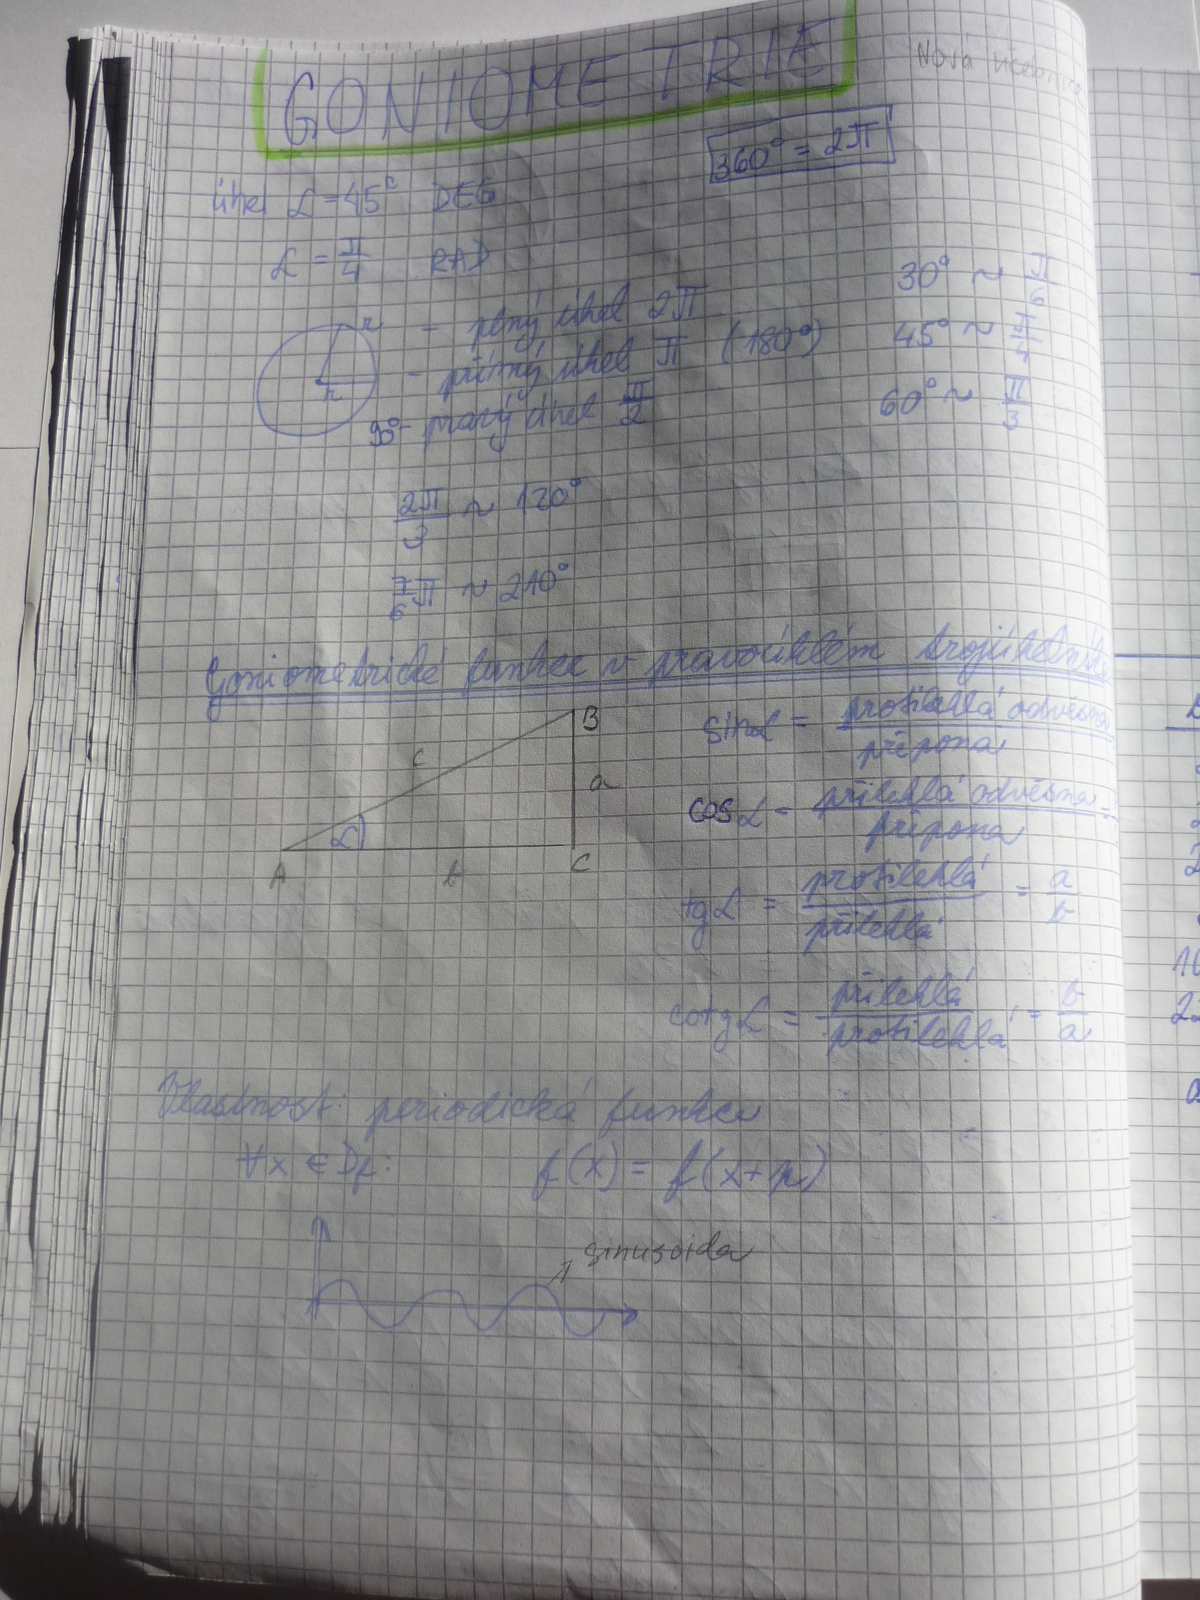 GONIOMETRIE
Nová učebnice
360° = 2π
úhel α = 45° DEG
α = π/4 RAD
30° ~ π/6
r - plný úhel 2π
45° ~ π/4
r - přímý úhel π (180°)
60° ~ π/3
90° - pravý úhel π/2
2π/3 ~ 120°
7/6 π ~ 210°
Goniometrické funkce v pravoúhlém trojúhelníku
B
sin α = protilehlá odvěsna / přepona
c
a
cos α = přilehlá odvěsna / přepona =
α
A b C
tg α = protilehlá / přilehlá = a/b
cotg α = přilehlá / protilehlá = b/a
Vlastnost: periodická funkce
∀x ∈ Df: f(x) = f(x+p)
sinusoida